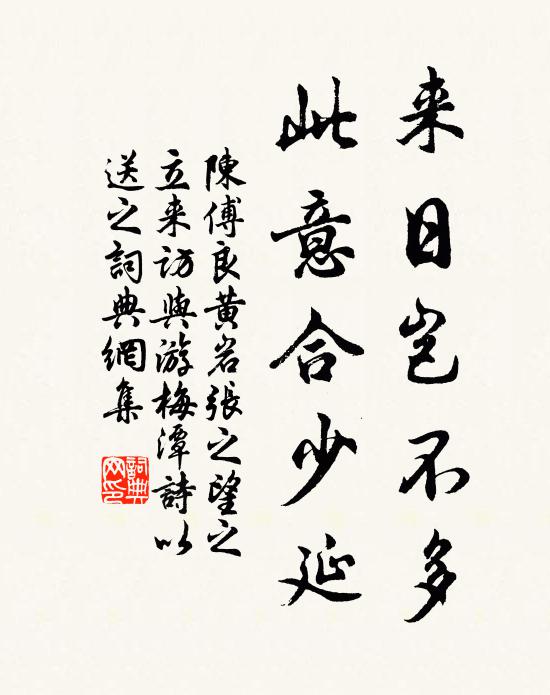 来日岂不多
此意合少延
陳傅良黄岩張之望之
立来訪與游梅潭詩以
送之詞典網集
詞典
网印